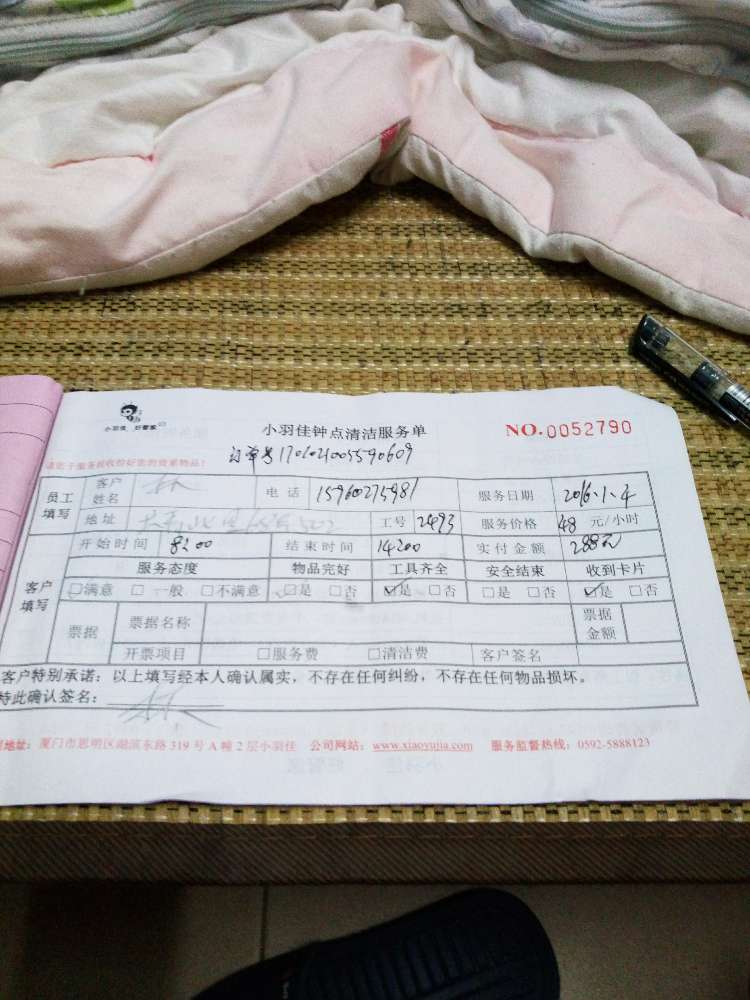 小羽佳 好管家
小羽佳钟点清洁服务单
NO.0052790
订单号1701021005590609
员工填写 客户姓名 林 电话 15960275981 服务日期 2016.1.4
地址 工号 2493 服务价格 48 元/小时
开始时间 8:00 结束时间 14:00 实付金额 288元
客户填写 服务态度 物品完好 工具齐全 安全结束 收到卡片
□满意 □一般 □不满意 □是 □否 ☑是 □否 □是 □否 ☑是 □否
票据 票据名称 票据金额
开票项目 □服务费 □清洁费 客户签名
客户特别承诺：以上填写经本人确认属实，不存在任何纠纷，不存在任何物品损坏。
特此确认签名：林
地址：厦门市思明区湖滨东路 319 号 A 幢 2 层小羽佳 公司网站：www.xiaoyujia.com 服务监督热线：0592-5888123